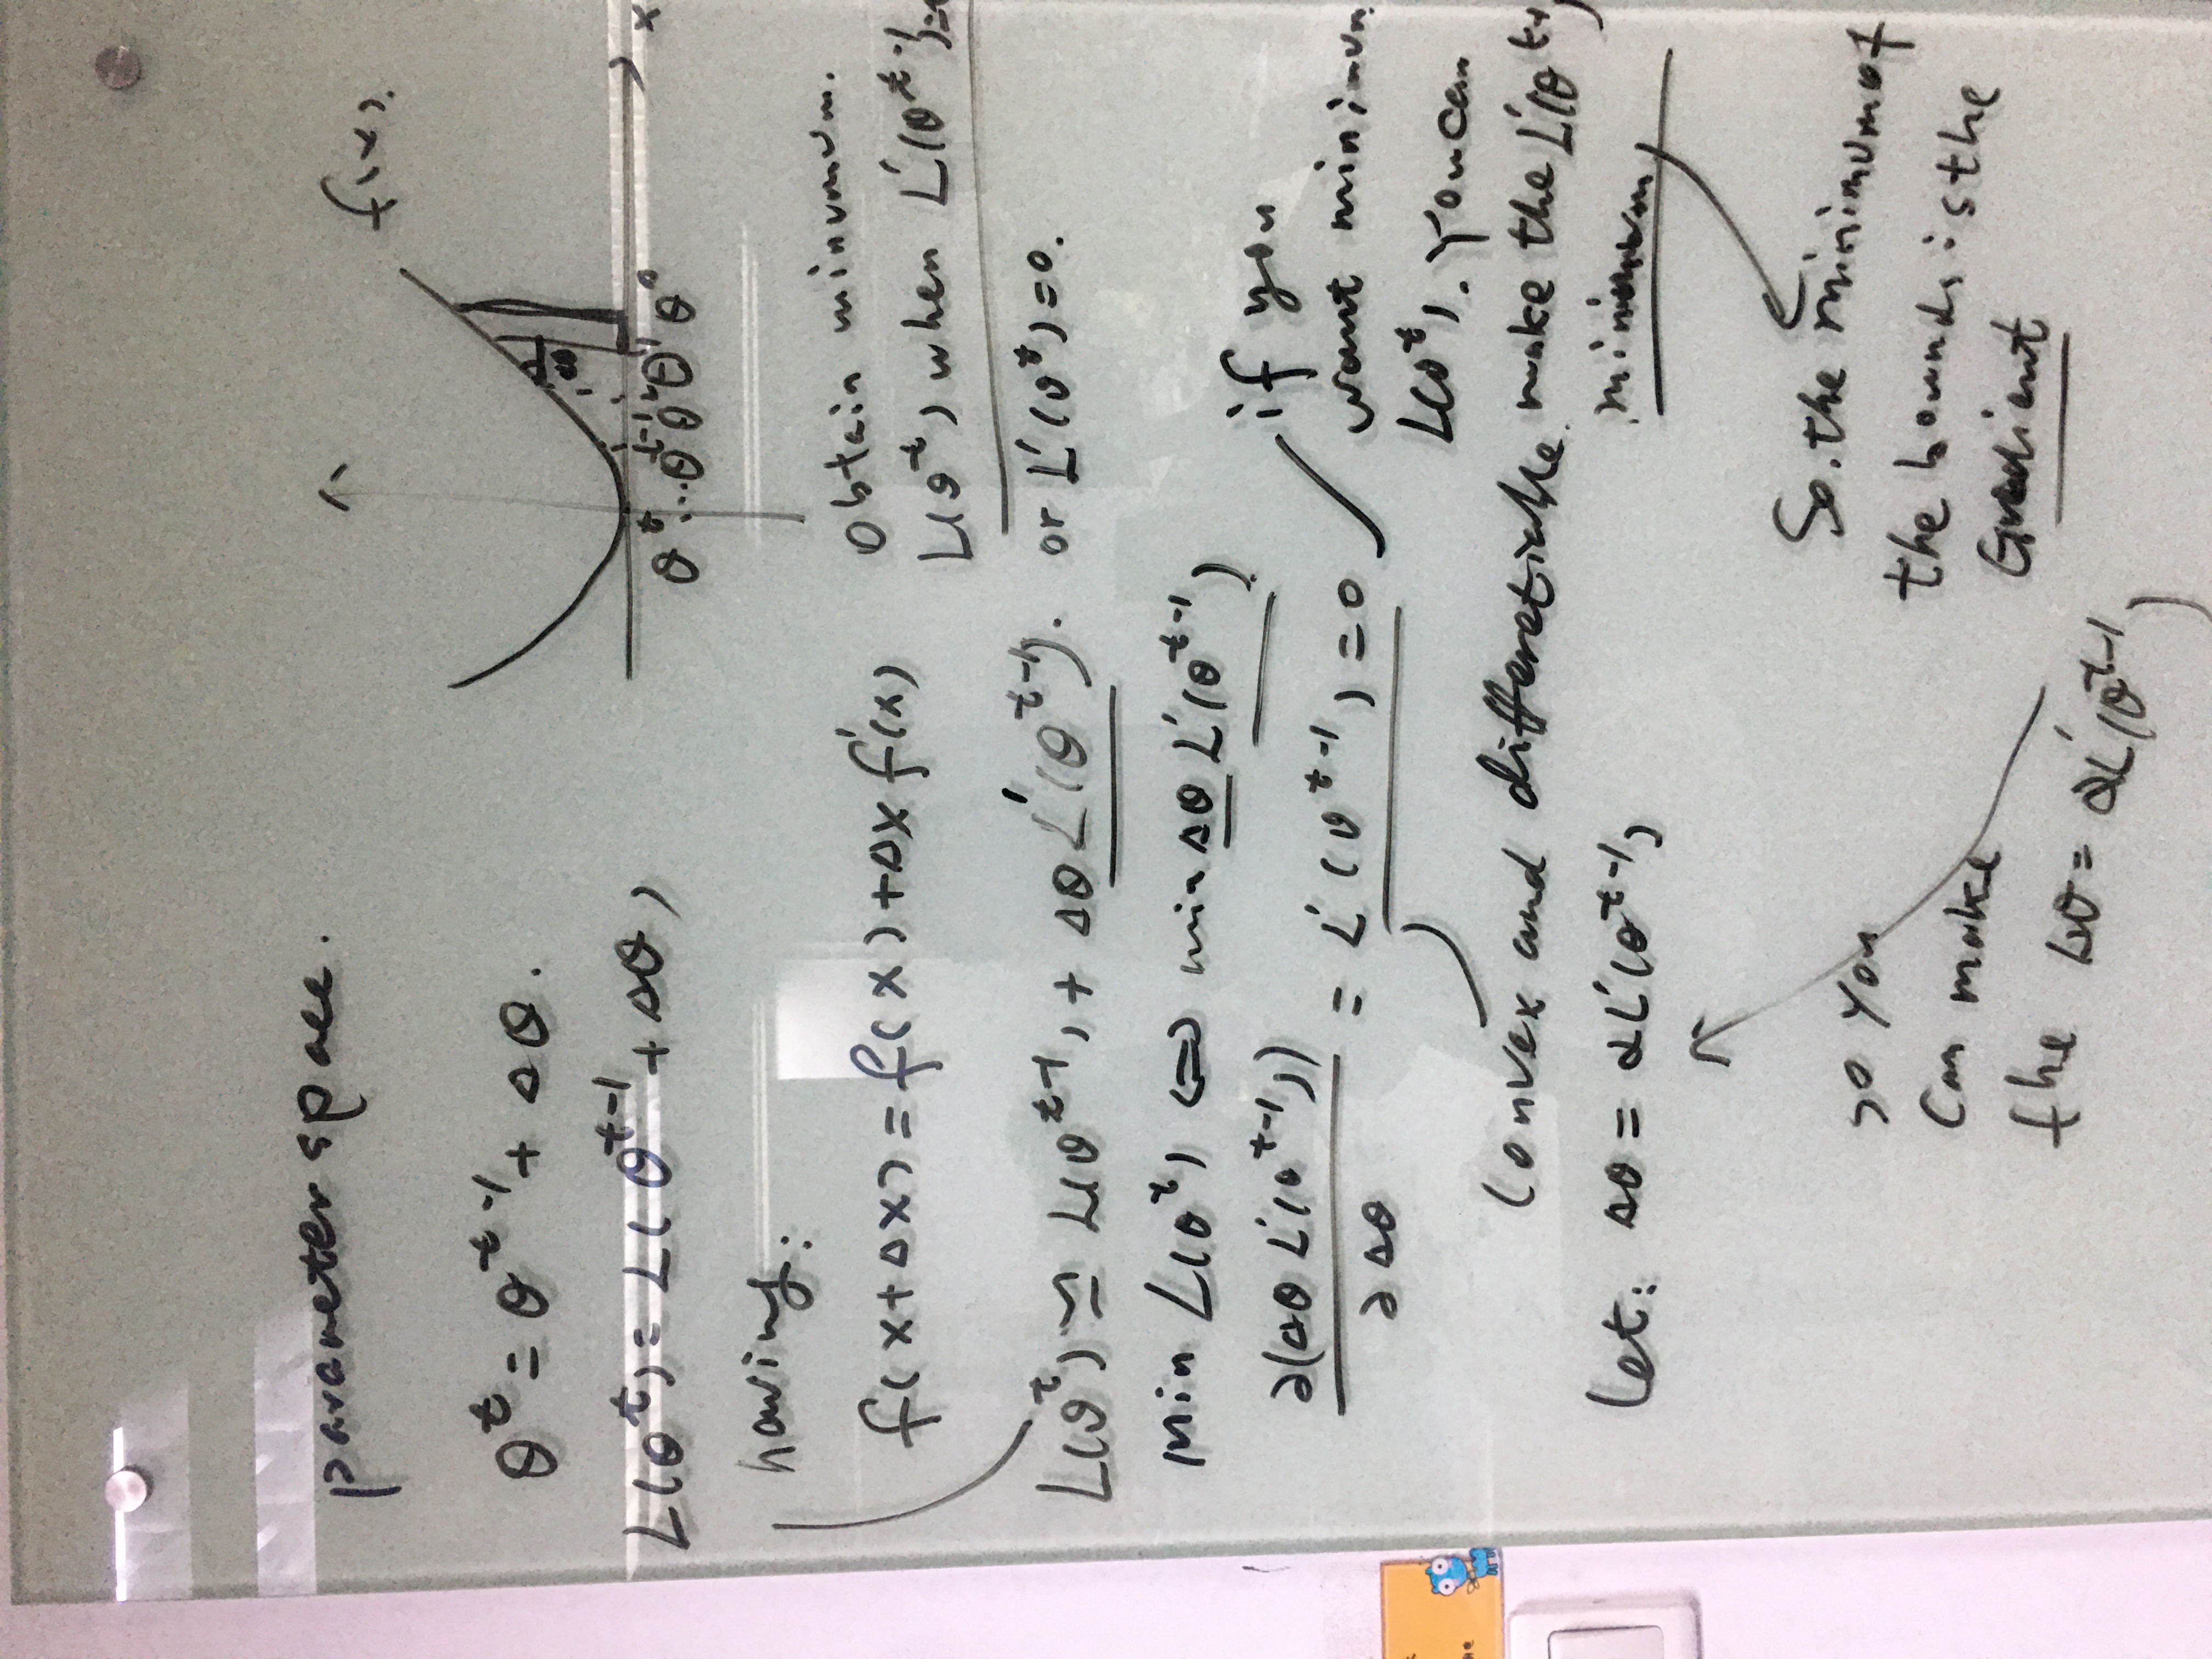 parameter space.
f(x).
x
Δθ
θ^t ... θ^{t-1} θ² θ¹ θ⁰
θ^t = θ^{t-1} + Δθ.
L(θ^t) = L(θ^{t-1} + Δθ)
having:
f(x+Δx) = f(x) + Δx f'(x)
L(θ^t) ≃ L(θ^{t-1}) + Δθ L'(θ^{t-1}).
min L(θ^t) ⇔ min Δθ L'(θ^{t-1}).
∂(Δθ L'(θ^{t-1})) / ∂Δθ = L'(θ^{t-1}) = 0
convex and differetiable.
let: Δθ = αL'(θ^{t-1})
so you
can make
the Δθ = αL'(θ^{t-1})
obtain minumum.
L(θ^t) when L'(θ^{t-1})=
or L'(θ^t)=0.
if you
want minimum
L(θ^t). you can
make the L'(θ^{t-1})
minimum
So. the minimum of
the bound is the
Gradient